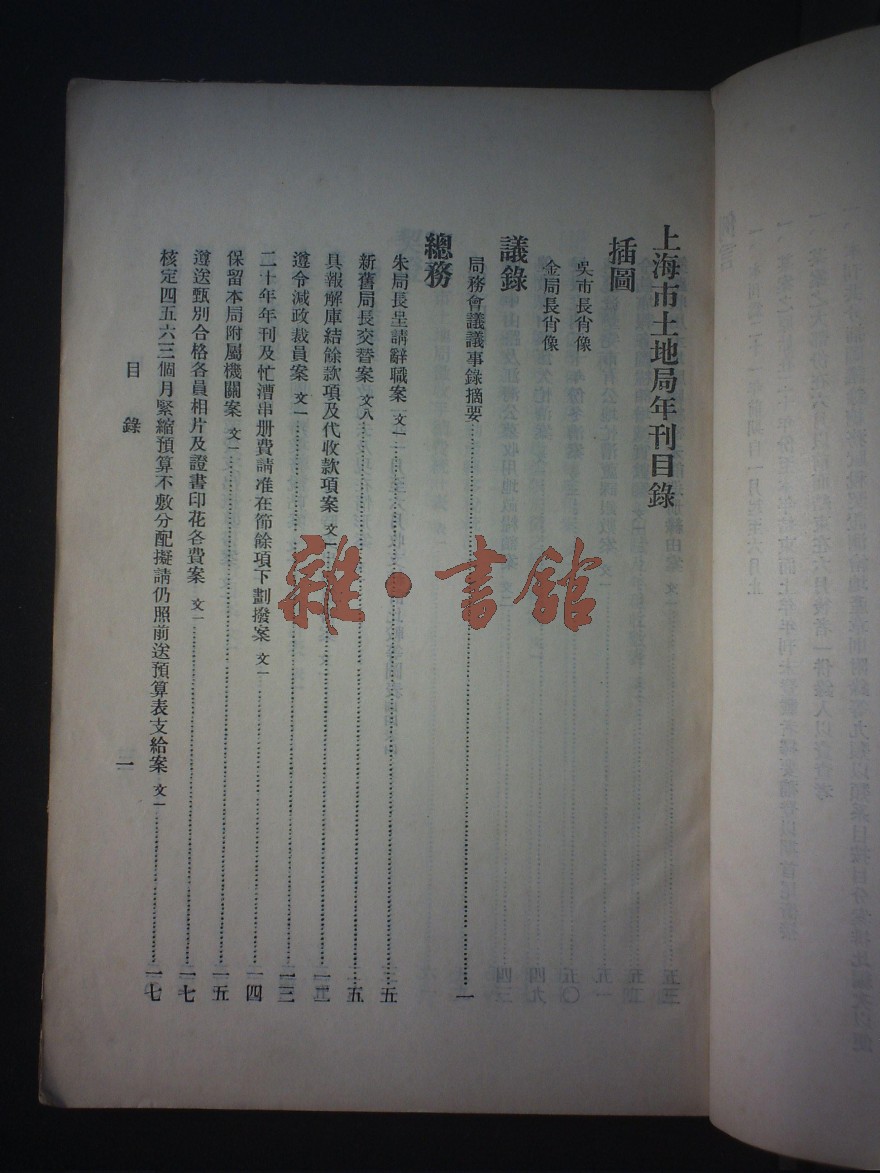 上海市土地局年刊目錄
插圖
吳市長肖像
金局長肖像
議錄
局務會議議事錄摘要……一
總務
朱局長呈請辭職案 文一……五
新舊局長交替案 文八……五
具報解庫結餘款項及代收款項案 文一……一二
遵令減政裁員案 文一……一三
二十年年刊及忙漕串册費請准在節餘項下劃撥案 文一……一四
保留本局附屬機關案 文一……一五
遵送甄別合格各員相片及證書印花各費案 文一……一七
核定四五六三個月緊縮預算不敷分配擬請仍照前送預算表支給案 文一……一七
目錄
一
雜·書館